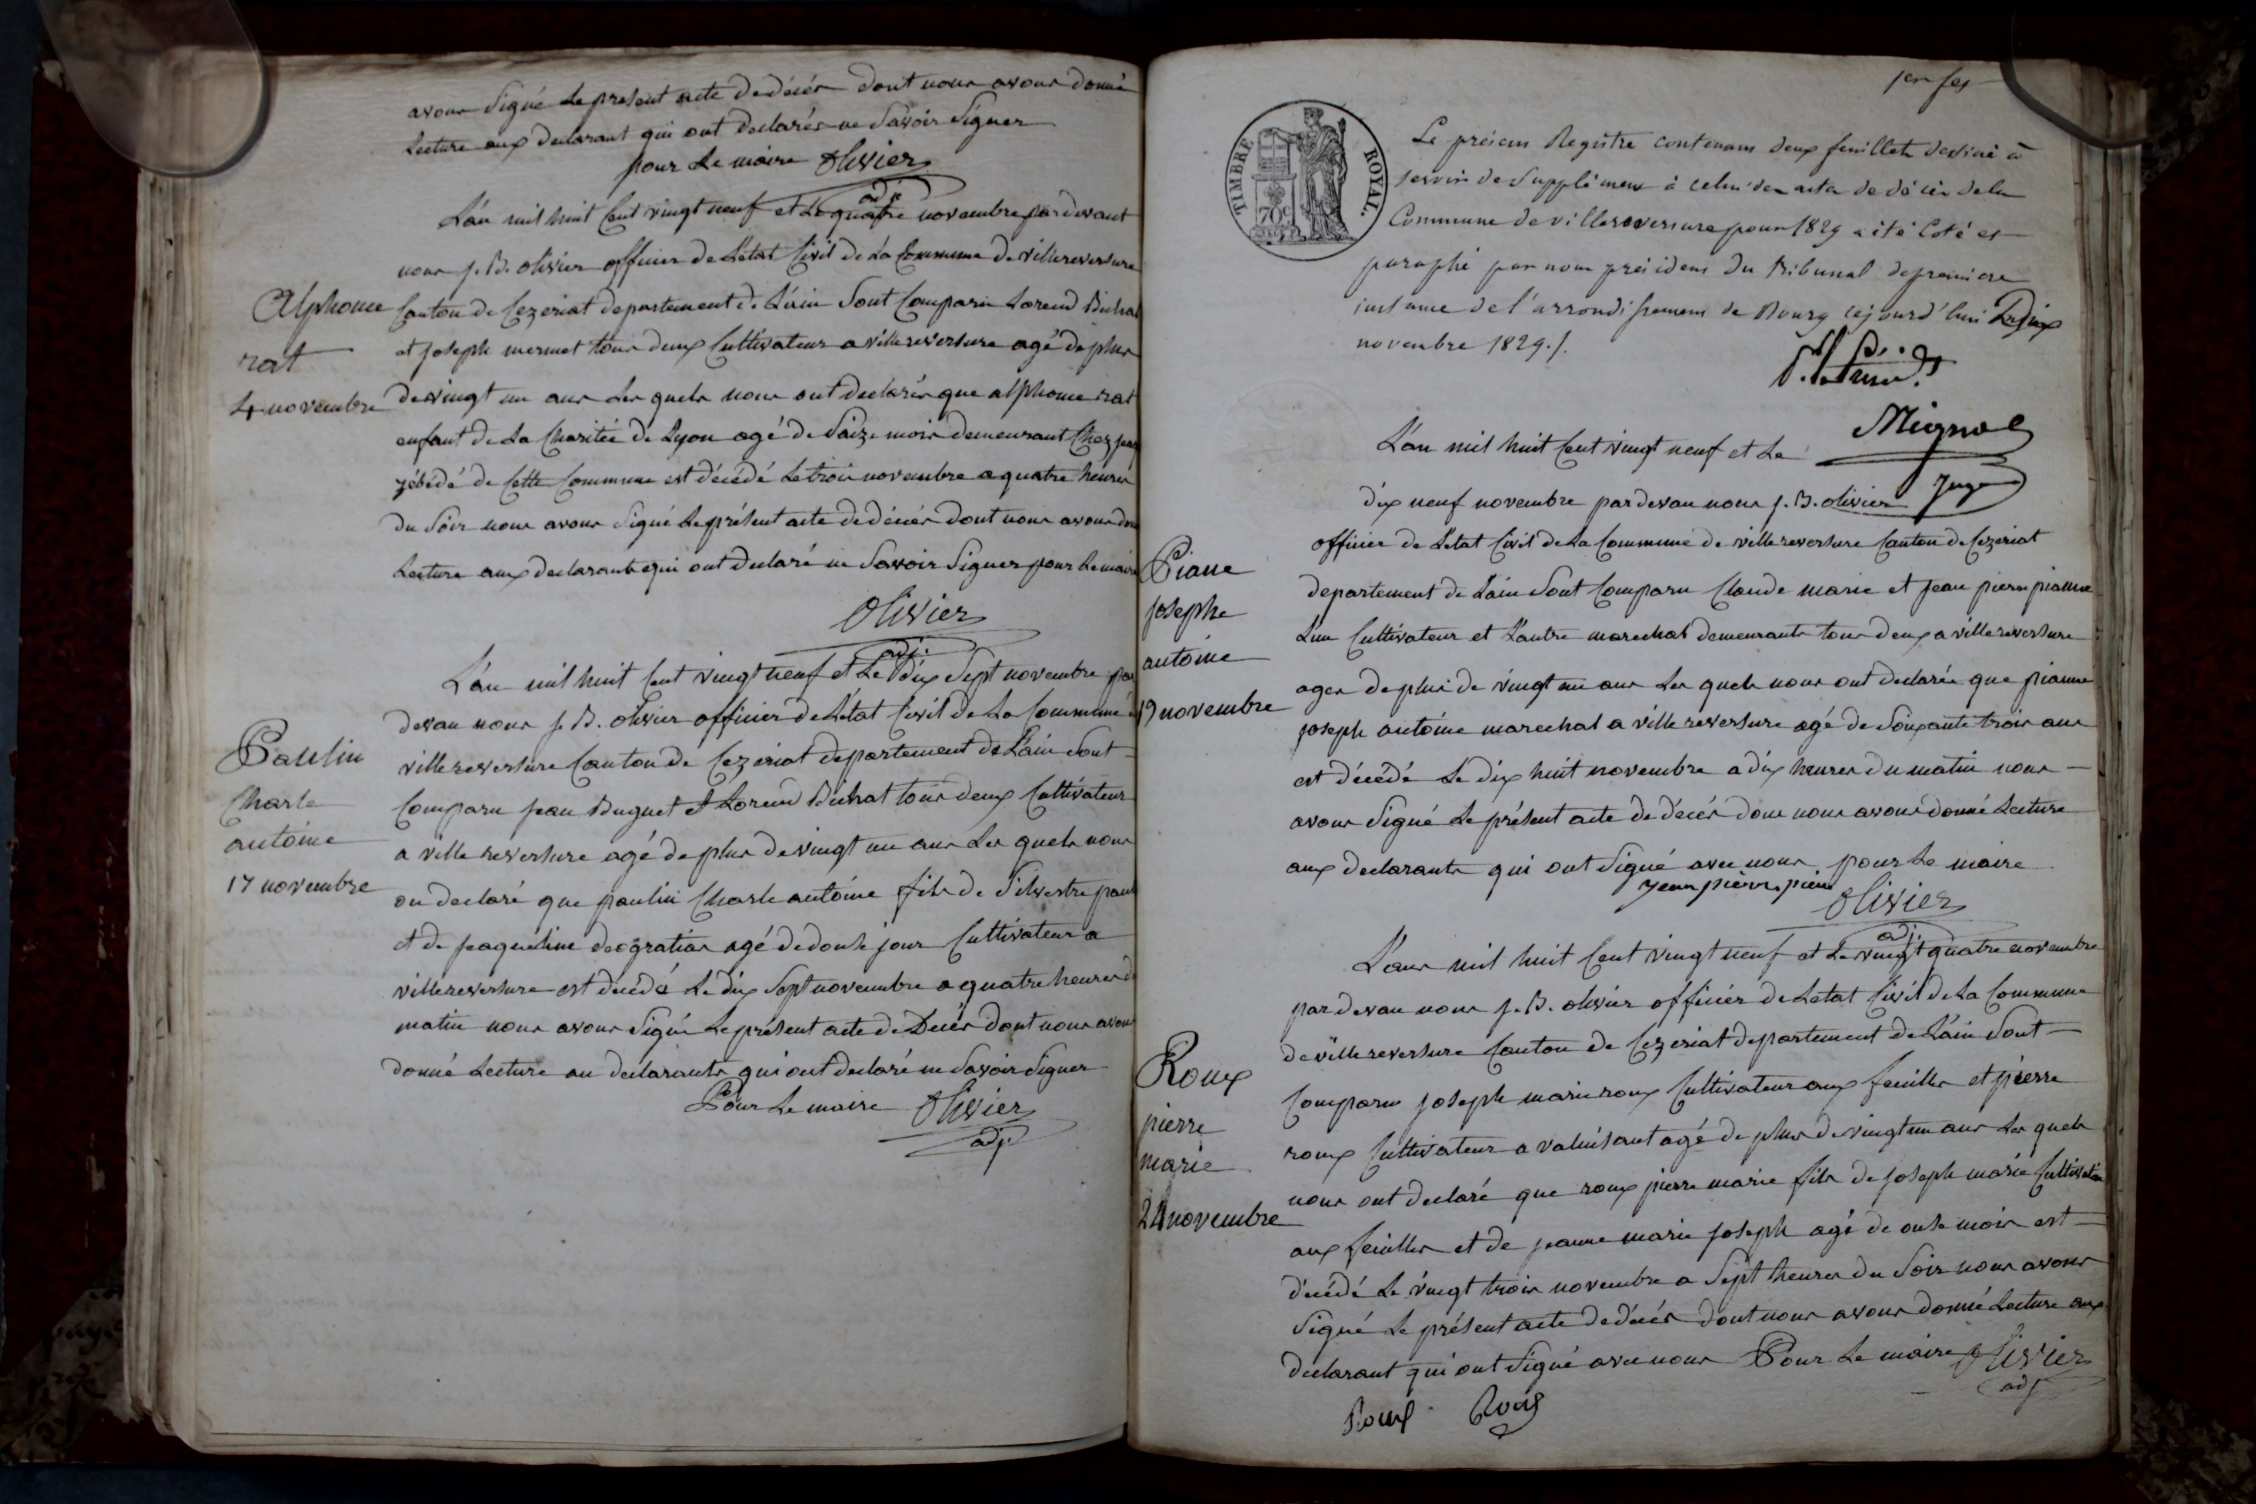 avons Signé Le present acte De décés dont nous avons donné
Lecture aux declarant qui ont declarés ne Savoir Signer
pour Le maire Olivier
adj.
L'an mil huit Cent vingt neuf et Le quatre novembre par devant
nous j. B. olivier officier de L'état Civil de La Commune de villereversure
Canton de Cezeriat departement de L'ain Sont Comparu Lorend Buhat
et joseph mermet tous deux Cultivateur a villereversure agé de plus
de vingt un ans Les quels nous ont declarés que alphonse rat
enfant de La Charitée de Lyon agé de Saize mois demeurant Chez
zébédé de Cette Commune est décédé Le trois novembre a quatre heures
du Soir nous avons Signé Le présent acte de décés dont nous avons
Lecture aux declarants qui ont declaré ne Savoir Signer pour Le maire
Olivier
adj.
Alphonse
rat
4 novembre
L'an mil huit Cent vingt neuf et Le dix Sept novembre par
devan nous j. B. olivier officier de L'état Civil de La Commune
villereversure Canton de Cezeriat departement de L'ain Sont
Comparu jean Buguet et Lorend Buhat tous deux Cultivateur
a villereversure agé de plus de vingt un ans Les quels nous
on declaré que paulin Charle antoine fils de Silvestre
et de jaqueline deogratias agé de douse jour Cultivateur a
villereversure est décédé Le dix Sept novembre a quatre heures
matin nous avons Signé Le présent acte de Décés dont nous avons
donné Lecture au declarants qui ont declaré ne Savoir Signer
Pour Le maire Olivier
adj.
Paulin
Charle
antoine
17 novembre
1er
TIMBRE ROYAL.
70c
Le présent Registre contenant deux feuillets destiné à
servir de Supplément à celui des actes de décès de la
Commune de villereversure pour 1829 a été Coté et
paraphé par nous président du tribunal de premiere
instance de l'arrondissement de Bourg cejourd'hui
novembre 1829./.
Mignot
Juge
L'an mil huit Cent vingt neuf et Le
dix neuf novembre par devan nous j. B. olivier
officier de L'etat Civil de La Commune de villereversure Canton de Cezeriat
departement de L'ain Sont Comparu Claude marie et jean pierre pianne
L'un Cultivateur et L'autre marechal demeurants tous deux a villereversure
ages de plus de vingt un ans Les quels nous ont declarés que pianne
joseph antoine marechal a villereversure agé de Soixante trois ans
est décédé Le dix huit novembre a dix heures du matin nous
avons Signé Le présent acte de décés donc nous avons donné Lecture
aux declarants qui ont Signé avec nous pour Le maire
jean pierre
Olivier
adj.
Piane
josephe
antoine
19 novembre
L'an mil huit Cent vingt neuf et Le vingt quatre novembre
par devan nous j. B. olivier officier de L'état Civil de La Commune
de villereversure Canton de Cezeriat departement de L'ain Sont
Comparu joseph marie roux Cultivateur aux feuilles et pierre
roux Cultivateur a agé de plus de vingt un ans Les quels
nous ont declaré que roux pierre marie fils de joseph marie Cultivateur
aux feuilles et de jeanne marie joseph agé de onse mois est
décédé Le vingt trois novembre a Sept heures du Soir nous avons
Signé Le présent acte de décés dont nous avons donné Lecture aux
declarant qui ont Signé avec nous Pour Le maire Olivier
adj
Roux
Roux
Roux
pierre
marie
24 novembre